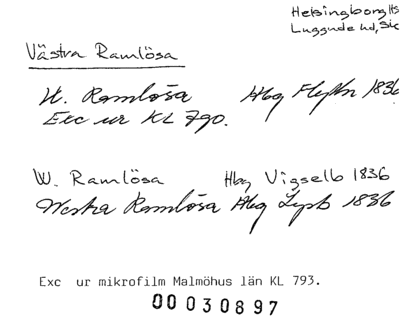 Helsingborg Hs
Luggude hd, Sk
Västra Ramlösa
W. Ramlösa Hbg Flyttn 1836
Exc ur KL 790.
W. Ramlösa Hbg Vigselb 1836
Westra Ramlösa Hbg Lysb 1836
Exc ur mikrofilm Malmöhus län KL 793.
00 030897